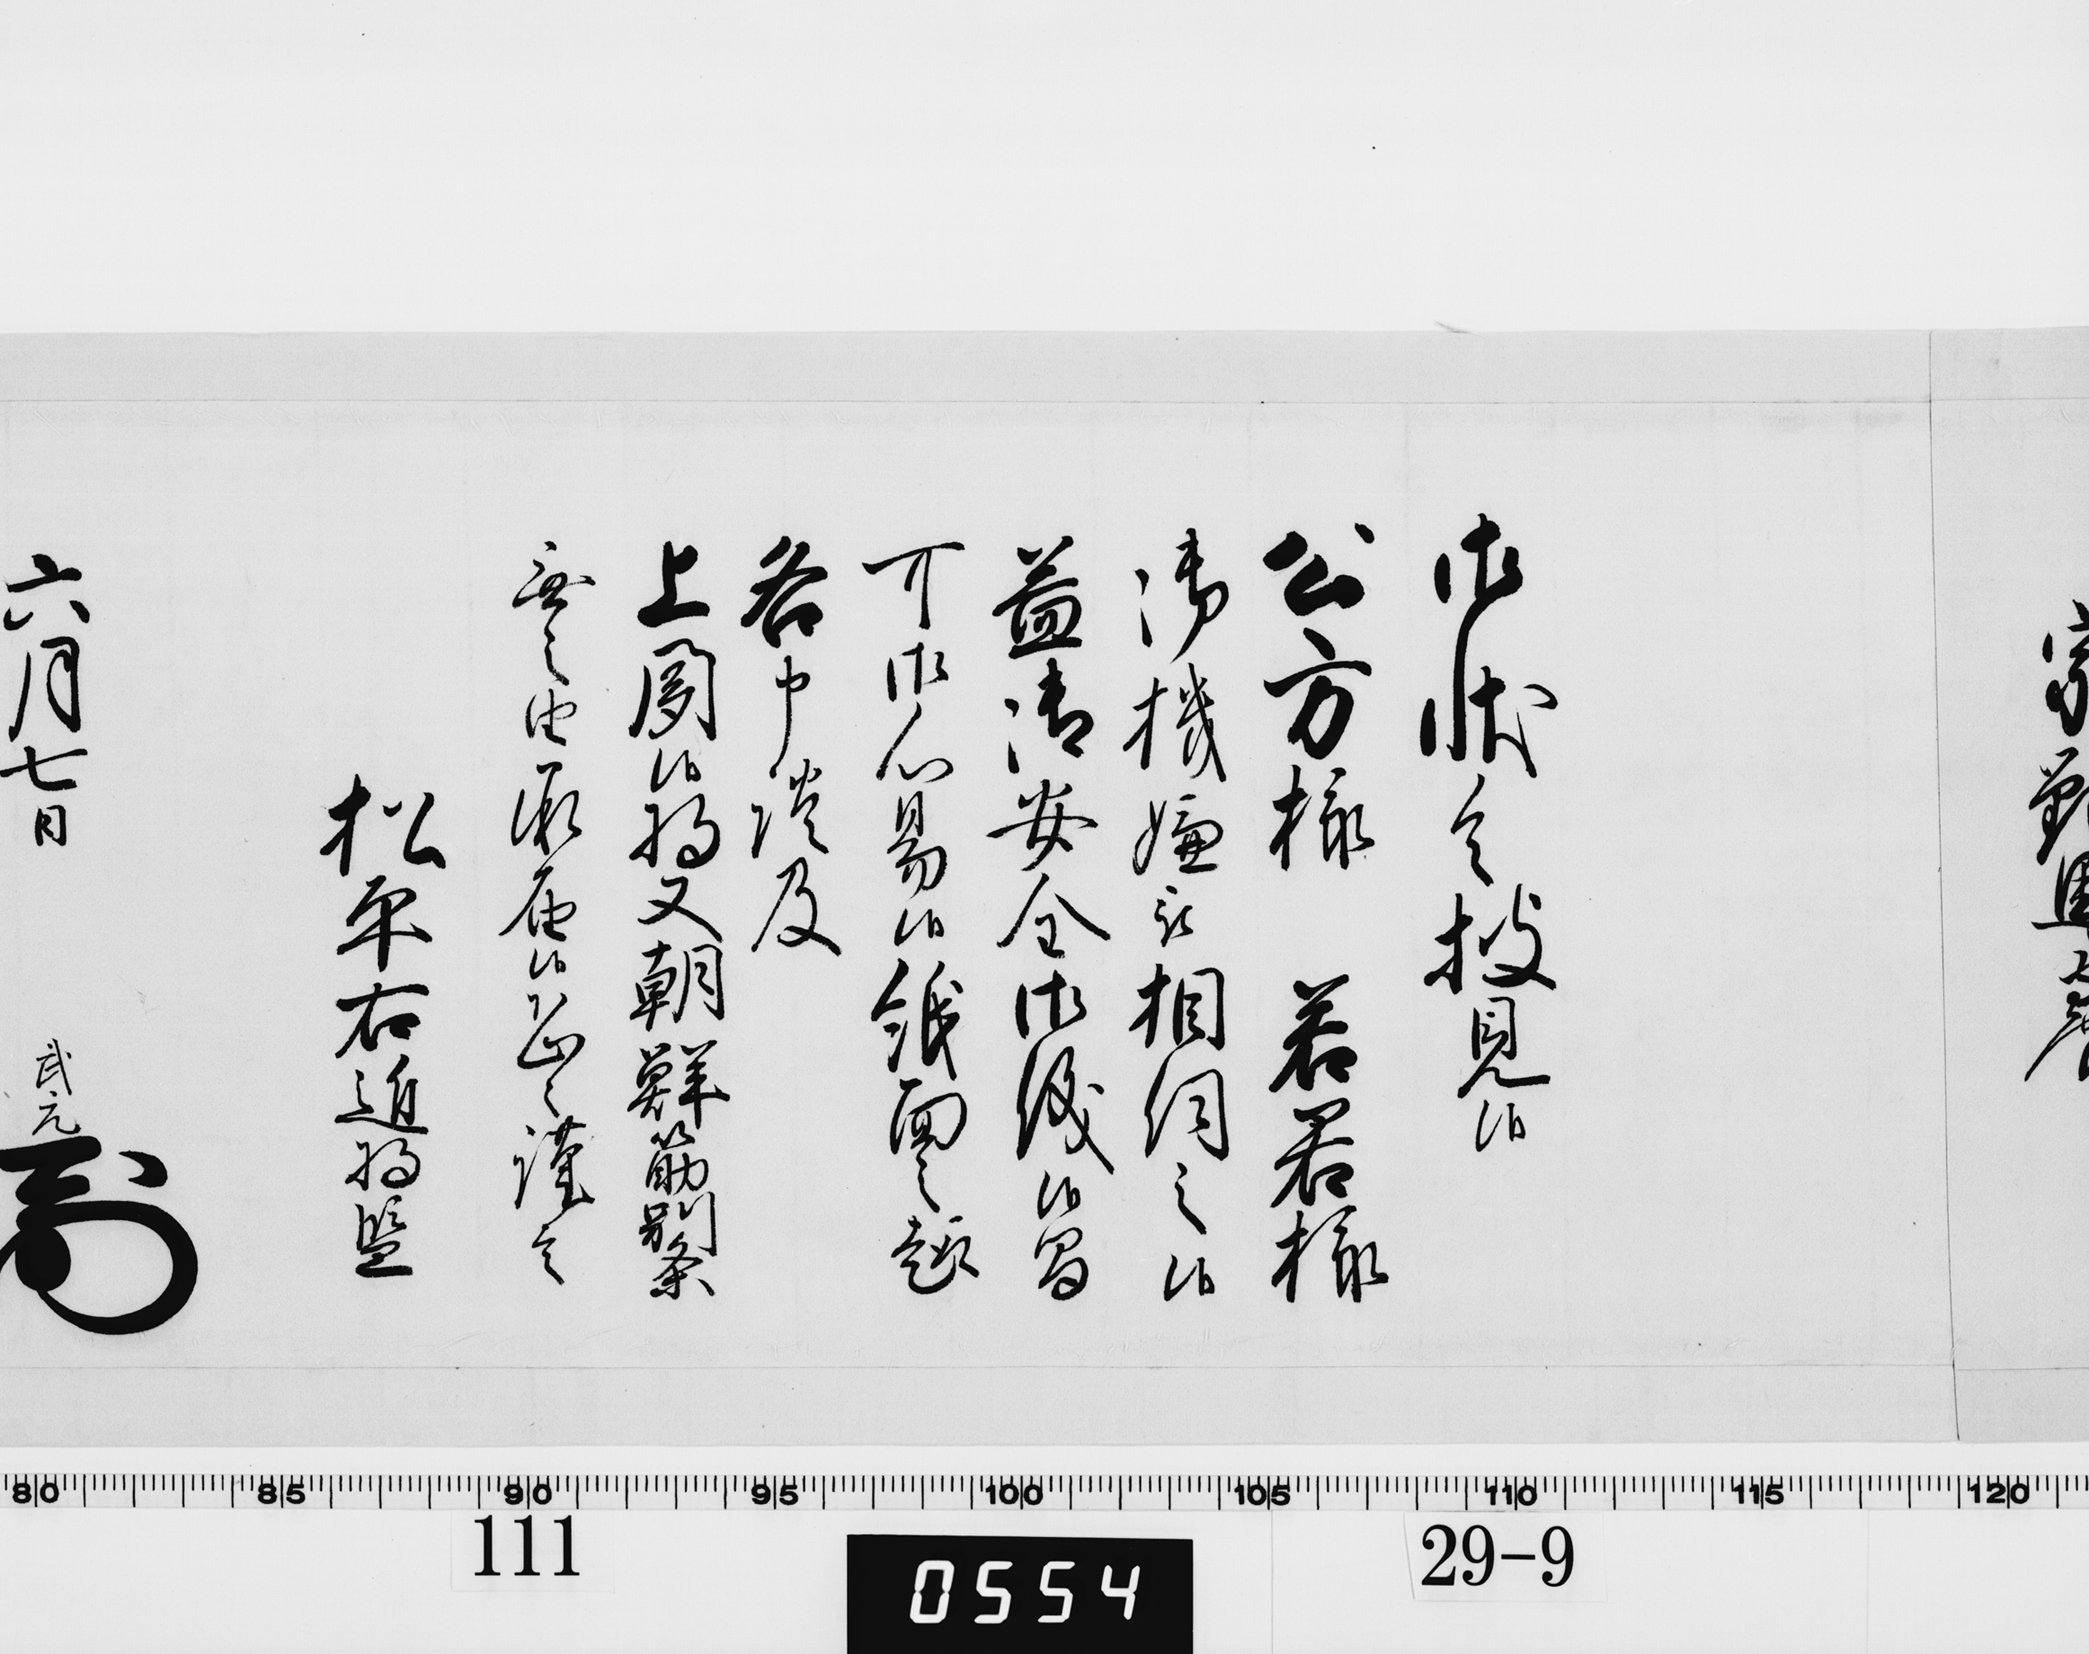 御状令披見候
公方様 若君様
御機嫌被相伺之候
益御安全御儀候間
可御心易候紙面之趣
各申談及
上聞候将又朝鮮筋別條
無之由承届候恐々謹言
松平右近将監
六月七日
武元
80 85 90 95 100 105 110 115 120
111
0554
29-9